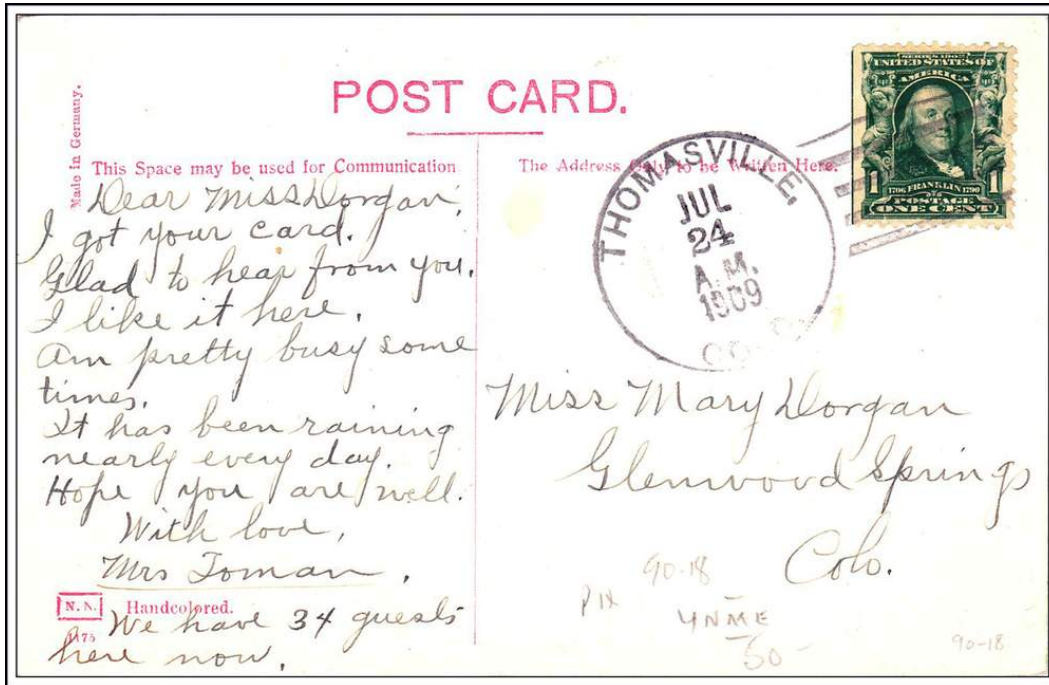 Made in Germany.
POST CARD.
This Space may be used for Communication
The Address Only to be Written Here.
SERIES 1902
UNITED STATES OF
AMERICA
1 1706 FRANKLIN 1790 1
POSTAGE
ONE CENT
THOMASVILLE.
JUL
24
A.M.
1909
Dear Miss Dorgan,
I got your card.
Glad to hear from you.
I like it here.
Am pretty busy some
times.
It has been raining
nearly every day.
Hope you are well.
With love,
Mrs Toman.
We have 34 guests
here now.
N. N. Handcolored.
Miss Mary Dorgan
Glenwood Springs
Colo.
90-18
PIX
4NME
50
90-18